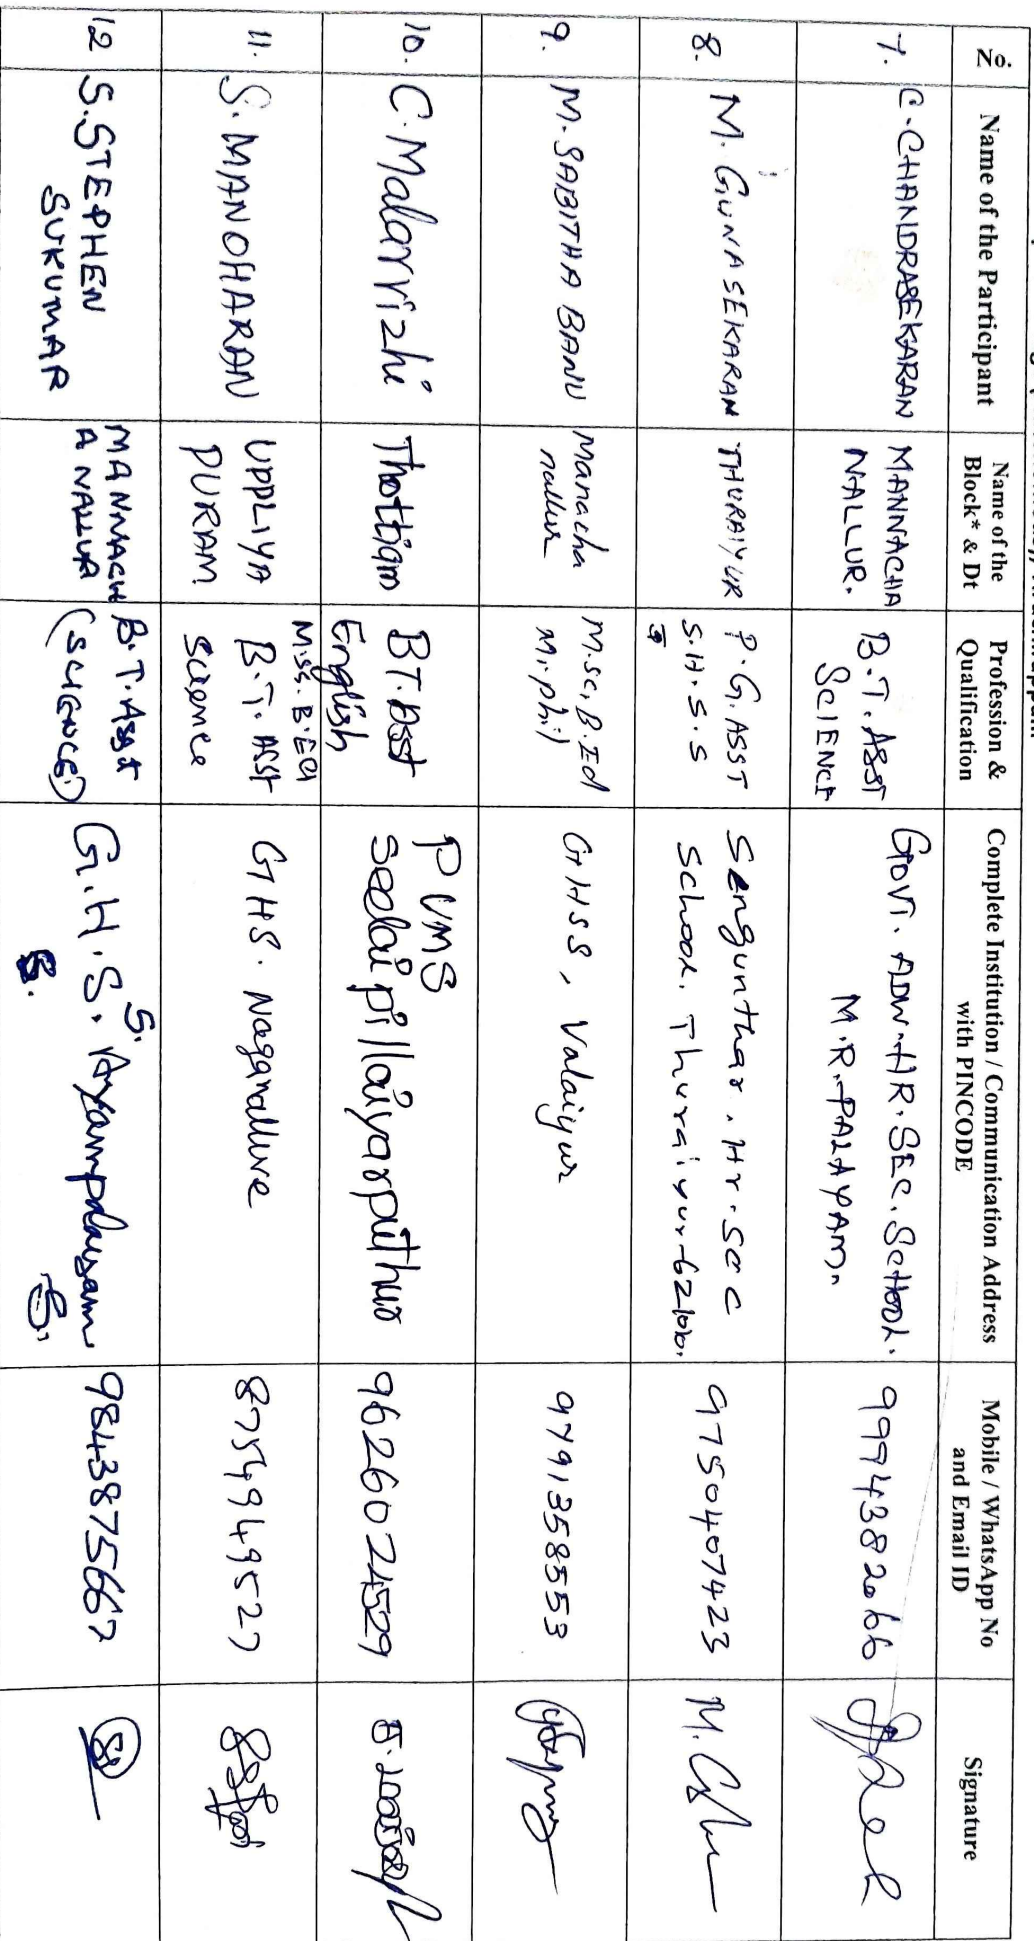 No.
Name of the Participant
Name of the
Block* & Dt
Profession &
Qualification
Complete Institution / Communication Address
with PINCODE
Mobile / WhatsApp No
and Email ID
Signature
7.
C. CHANDRASEKARAN
MANNACHA
NALLUR.
B.T. ASST
SCIENCE
GOVT. ADW. HR. SEC. SCHOOL.
M.R. PALAYAM.
9994382066
8.
M. GUNASEKARAN
THURAIYUR
P.G. ASST
S.H.S.S
Sengunthar. Hr. Sec
School. Thuraiyur-621010.
9750407423
9.
M. SABITHA BANU
Manacha
nallur
M.sc, B.Ed
M.phil)
GHSS, Valaiyur
9791358553
10.
C. Malarvizhi
Thottiam
BT. Asst
English
PUMS
Seelaipillaiyarputhur
9626024529
11.
S. MANOHARAN
UPPLIYA
PURAM
M.Sc. B.Ed
B.T. ASST
Science
GHS. Naganallure
8754949527
12
S. STEPHEN
SUKUMAR
MANNACH
A NALLUR
B.T. Asst
(SCIENCE)
G.H.S.S. Ayampalayam
9843875667